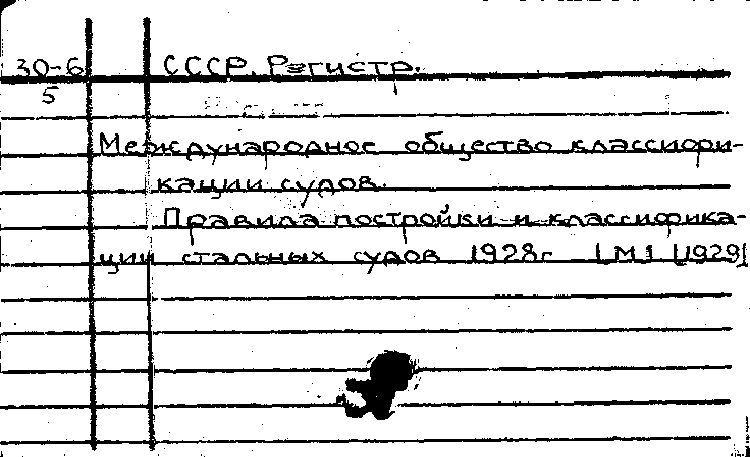 30-6 СССР. Регистр.
5
Международное общество классифи-
кации судов.
Правила постройки и классифика-
ции стальных судов 1928г [М] [1929]